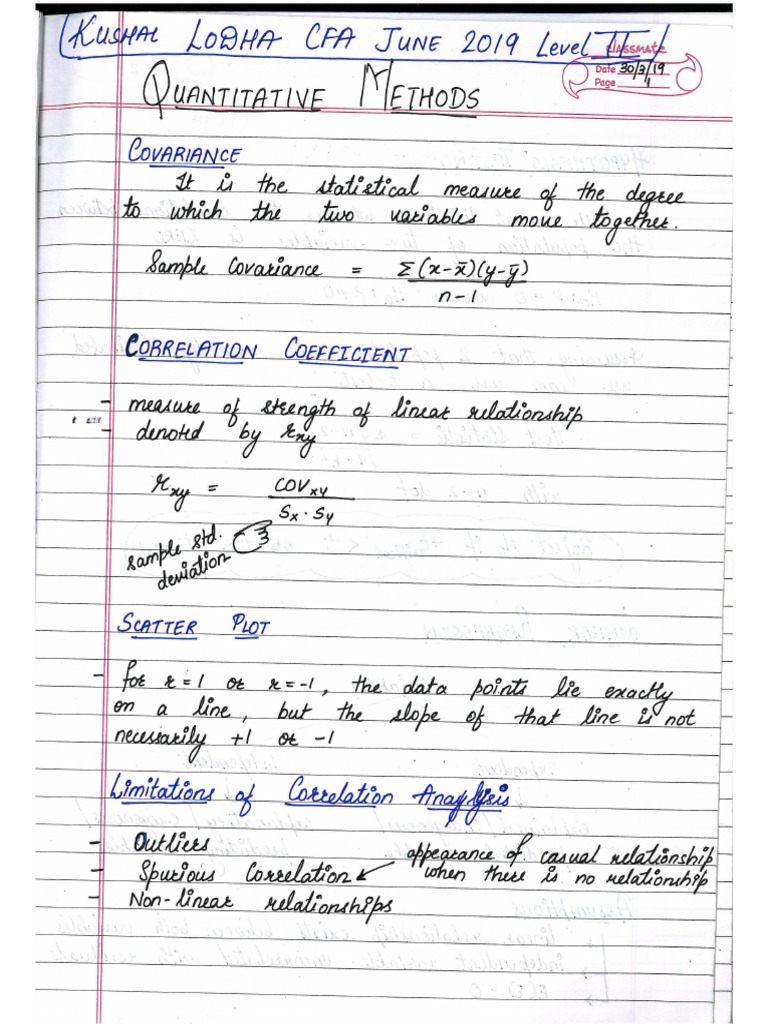 KUSHAL LODHA CFA JUNE 2019 Level II
classmate
Date 30/3/19
Page 1
QUANTITATIVE METHODS
COVARIANCE
It is the statistical measure of the degree
to which the two variables move together.
Sample Covariance = Σ(x-x̄)(y-ȳ)
n-1
CORRELATION COEFFICIENT
- measure of strength of linear relationship
- denoted by rxy
rxy = COVxy
Sx · Sy
sample std.
deviation
SCATTER PLOT
- for r=1 or r=-1, the data points lie exactly
on a line, but the slope of that line is not
necessarily +1 or -1
Limitations of Correlation Anaylysis
- Outliers
- Spurious Correlation ↙ appearance of casual relationship
when there is no relationship
- Non-linear relationships